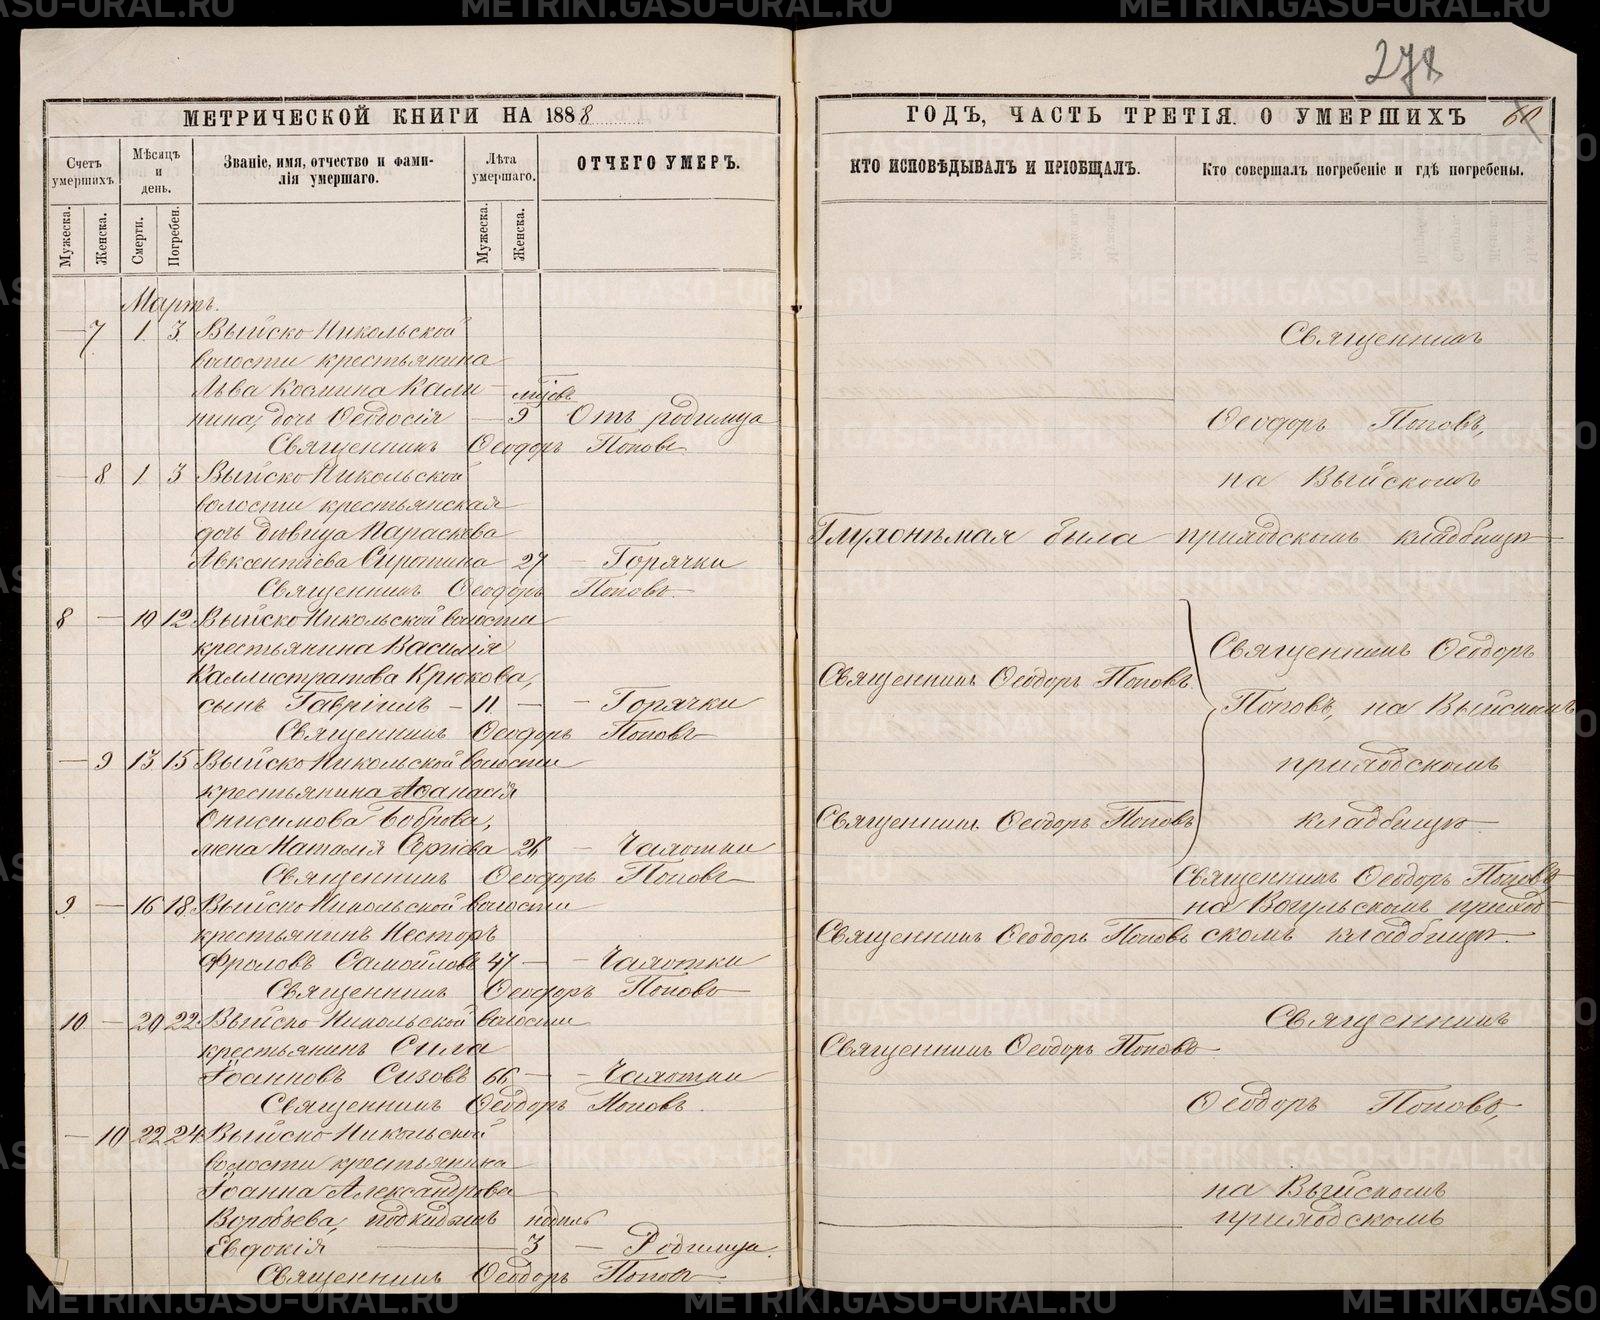 278
МЕТРИЧЕСКОЙ КНИГИ НА 1888
ГОДЪ, ЧАСТЬ ТРЕТІЯ. О УМЕРШИХЪ
60
Счетъ умершихъ.
Мѣсяцъ и день.
Званіе, имя, отчество и фами-
лія умершаго.
Лѣта умершаго.
ОТЧЕГО УМЕРЪ.
КТО ИСПОВѢДЫВАЛЪ И ПРІОБЩАЛЪ.
Кто совершалъ погребеніе и гдѣ погребены.
Мужеска.
Женска.
Смерти.
Погребен.
Мужеска.
Женска.
Мартъ.
— 7 1. 3. Выйско Никольской
волости крестьянина
Льва Космина Кали-
нина, дочь Ѳеодосія — мѣсяцъ 9 Отъ родимца
Священникъ Ѳеодоръ Поповъ
Священникъ
Ѳеодоръ Поповъ,
на Выйскомъ
приходскомъ кладбищѣ
— 8 1 3 Выйско Никольской
волости крестьянская
дочь дѣвица Параскева
Авксентіева Сиротина 27 — Горячки
Священникъ Ѳеодоръ Поповъ.
Глухонѣмая была
8 — 10 12 Выйско Никольской волости
крестьянина Василія
Каллистратова Крюкова,
сынъ Гавріилъ — 11 — — Горячки
Священникъ Ѳеодоръ Поповъ
Священникъ Ѳеодоръ Поповъ.
Священникъ Ѳеодоръ
Поповъ, на Выйскомъ
приходскомъ
кладбищѣ
— 9 13 15 Выйско Никольской волости
крестьянина Аѳанасія
Онисимова Боброва,
жена Наталія Сергіева 26 — Чахотки
Священникъ Ѳеодоръ Поповъ
Священникъ Ѳеодоръ Поповъ
9 — 16 18 Выйско Никольской волости
крестьянинъ Несторъ
Фроловъ Самойловъ 47 — — Чахотки
Священникъ Ѳеодоръ Поповъ
Священникъ Ѳеодоръ Поповъ
Священникъ Ѳеодоръ Поповъ
на Вогульскомъ приход-
скомъ кладбищѣ.
10 — 20 22 Выйско Никольской волости
крестьянинъ Сила
Іоанновъ Сизовъ 66 — — Чахотки
Священникъ Ѳеодоръ Поповъ.
Священникъ Ѳеодоръ Поповъ
Священникъ
Ѳеодоръ Поповъ,
на Выйскомъ
приходскомъ
— 10 22 24 Выйско-Никольской
волости крестьянина
Іоанна Александрова
Воробьева, подкидышъ
Евдокія — 3 — Родимца.
Священникъ Ѳеодоръ Поповъ
METRIKI.GASO-URAL.RU